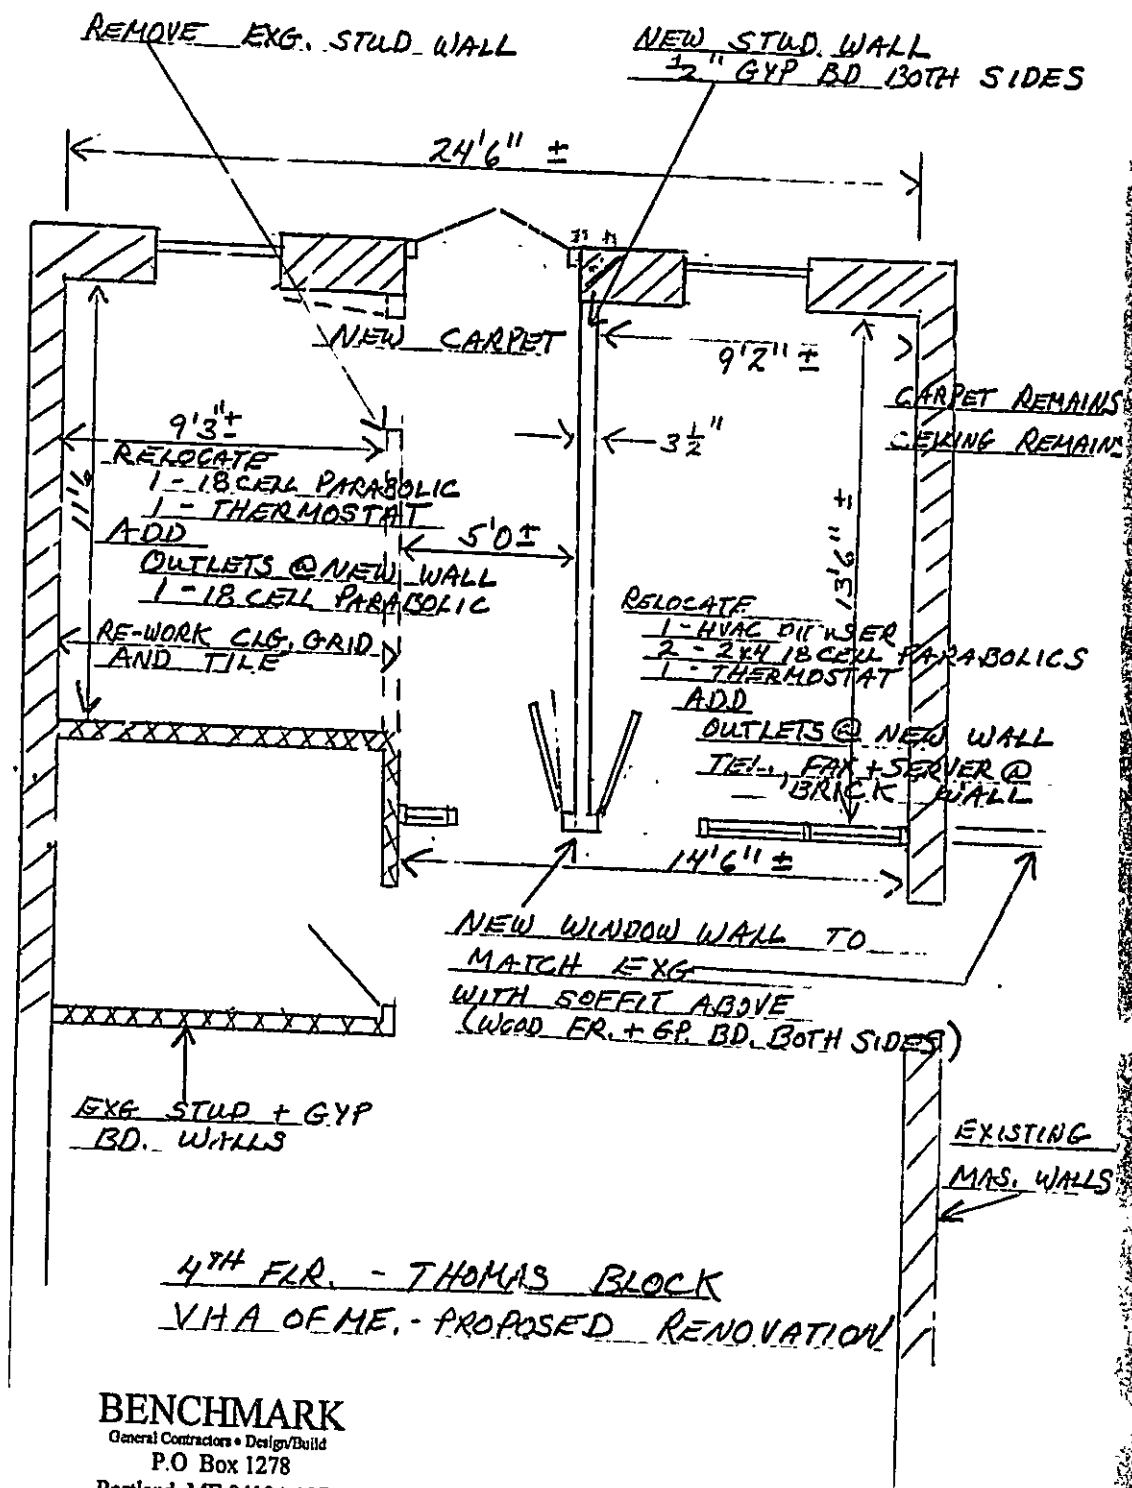 REMOVE EXG. STUD WALL
NEW STUD WALL
1/2" GYP BD BOTH SIDES
24'6" ±
NEW CARPET
9'2" ±
CARPET REMAINS
CEILING REMAIN
9'3"±
3 1/2"
RELOCATE
1 - 18 CELL PARABOLIC
1 - THERMOSTAT
ADD
OUTLETS @ NEW WALL
1 - 18 CELL PARABOLIC
5'0±
13'6" ±
RE-WORK CLG. GRID
AND TILE
RELOCATE
1 - HVAC DIFUSER
2 - 2x4 18 CELL PARABOLICS
1 - THERMOSTAT
ADD
OUTLETS @ NEW WALL
TEL., FAX + SERVER @
BRICK WALL
14'6" ±
NEW WINDOW WALL TO
MATCH EXG
WITH SOFFIT ABOVE
(WOOD FR. + GP. BD. BOTH SIDES)
EXG STUD + GYP
BD. WALLS
EXISTING
MAS. WALLS
4TH FLR. - THOMAS BLOCK
VHA OF ME. - PROPOSED RENOVATION
BENCHMARK
General Contractors • Design/Build
P.O Box 1278
Portland, ME